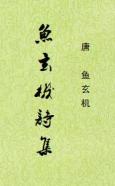 唐 鱼玄机
魚玄機詩集